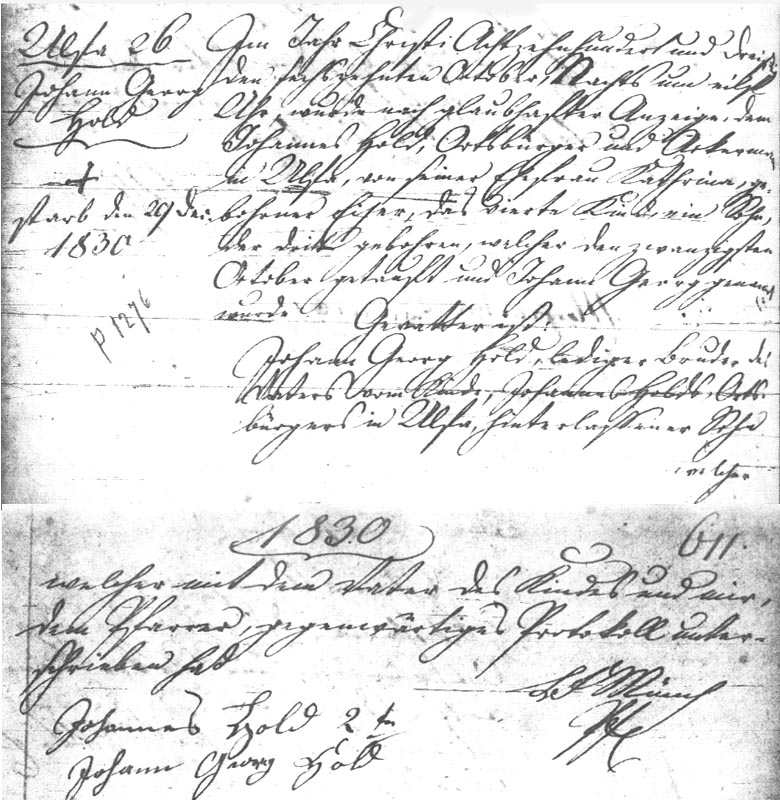 Ulfa 26
Johann Georg
Hold
†
starb den 29 Dec.
1830
p 1276
Im Jahr Christi Achtzehnhundert und dreißig
den sechszehnten October Nachts um eilf
Uhr, wurde nach glaubhafter Anzeige, dem
Johannes Hold, Ortsbürger und Ackermann
in Ulfa, von seiner Ehefrau Kathrina, ge-
bohrner Eiser, das vierte Kind, ein Sohn,
der dritte gebohren, welcher den zwanzigsten
October getauft und Johann Georg genannt
wurde
Gevatter ist:
Johann Georg Hold, lediger Bruder des
Vaters vom Kinde, Johannes Holds, Orts-
bürgers in Ulfa, hinterlassener Sohn
welcher
1830
611.
welcher mit dem Vater des Kindes und mir,
dem Pfarrer, gegenwärtiges Protokoll unter-
schrieben hat
Münch
Pf
Johannes Hold 2 t
Johann Georg Hold